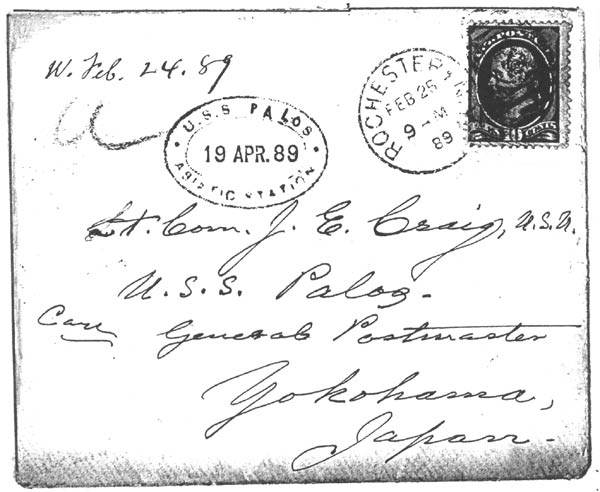 W. Feb. 24. 89
U.S.S. PALOS.
19 APR. 89
ASIATIC STATION
ROCHESTER, N.
FEB 25
9-M
89
Lt. Com. J. E. Craig, U.S.N.
U.S.S. Palos.
Care General Postmaster
Yokohama,
Japan.